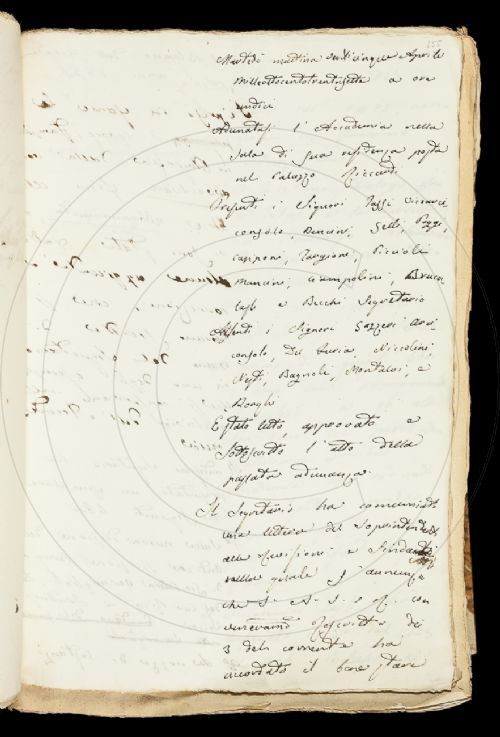 155
Martedì mattina venticinque Aprile
Milleottocentotrentasette a ore
undici
Adunatasi l'Accademia nella
Sala di sua residenza posta
nel Palazzo Riccardi
Presenti i Signori Tassi Vicearci
consolo, Bencini, Selli, Poggi,
Capponi, Targioni, Piccioli
Mancini, Ciampolini,
e Becchi Segretario
Assenti i Signori Gazzeri Arci
consolo, Del Furia, Niccolini,
Nesti, Bagnoli, Montalvi, e
Borghi
È stato letto, approvato e
Sottoscritto l'atto della
passata adunanza.
Il Segretario ha comunicato
una lettera del Soprintendente
alle Revisioni e Sindacati
nella quale s'annunzia
che S. A. I. e R. con
veneratissimo Rescritto de
3 del corrente ha
accordato il bene stare